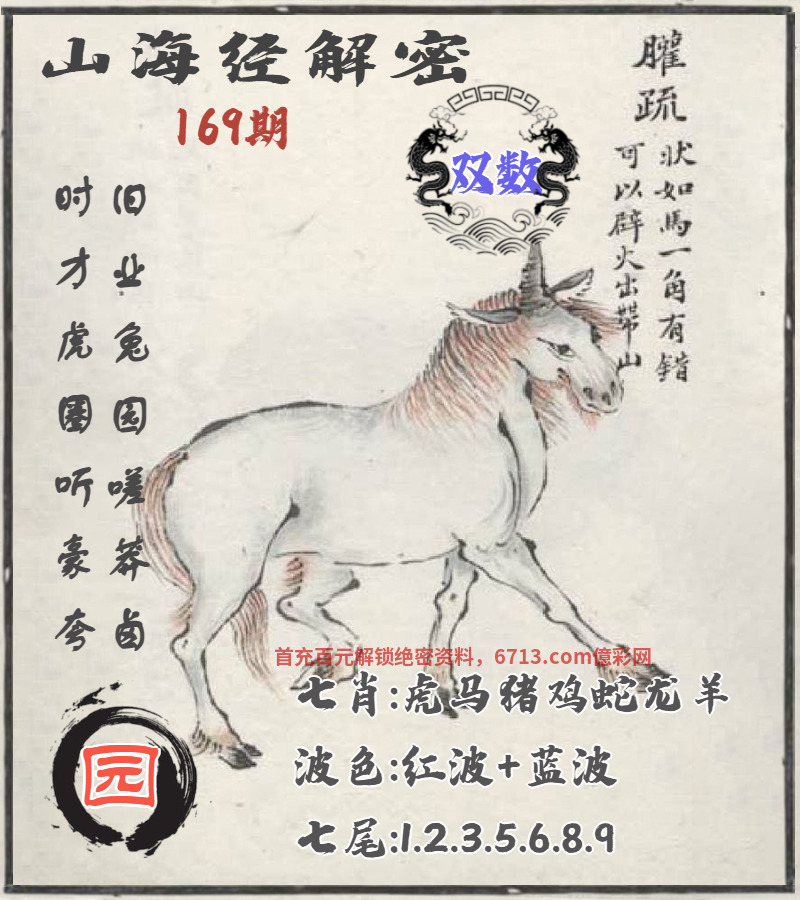 山海经解密
169期
双数
臛疏
狀如馬一角有錯
可以辟火出帶山
旧业兔园嗟莽卤
时才虎圈听豪夸
首充百元解锁绝密资料，6713.com億彩网
七肖:虎马猪鸡蛇龙羊
波色:红波+蓝波
七尾:1.2.3.5.6.8.9
园